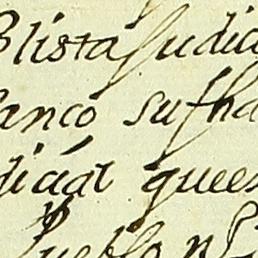 Blista Judic
anco sufha
dicial quees
Pueblo n